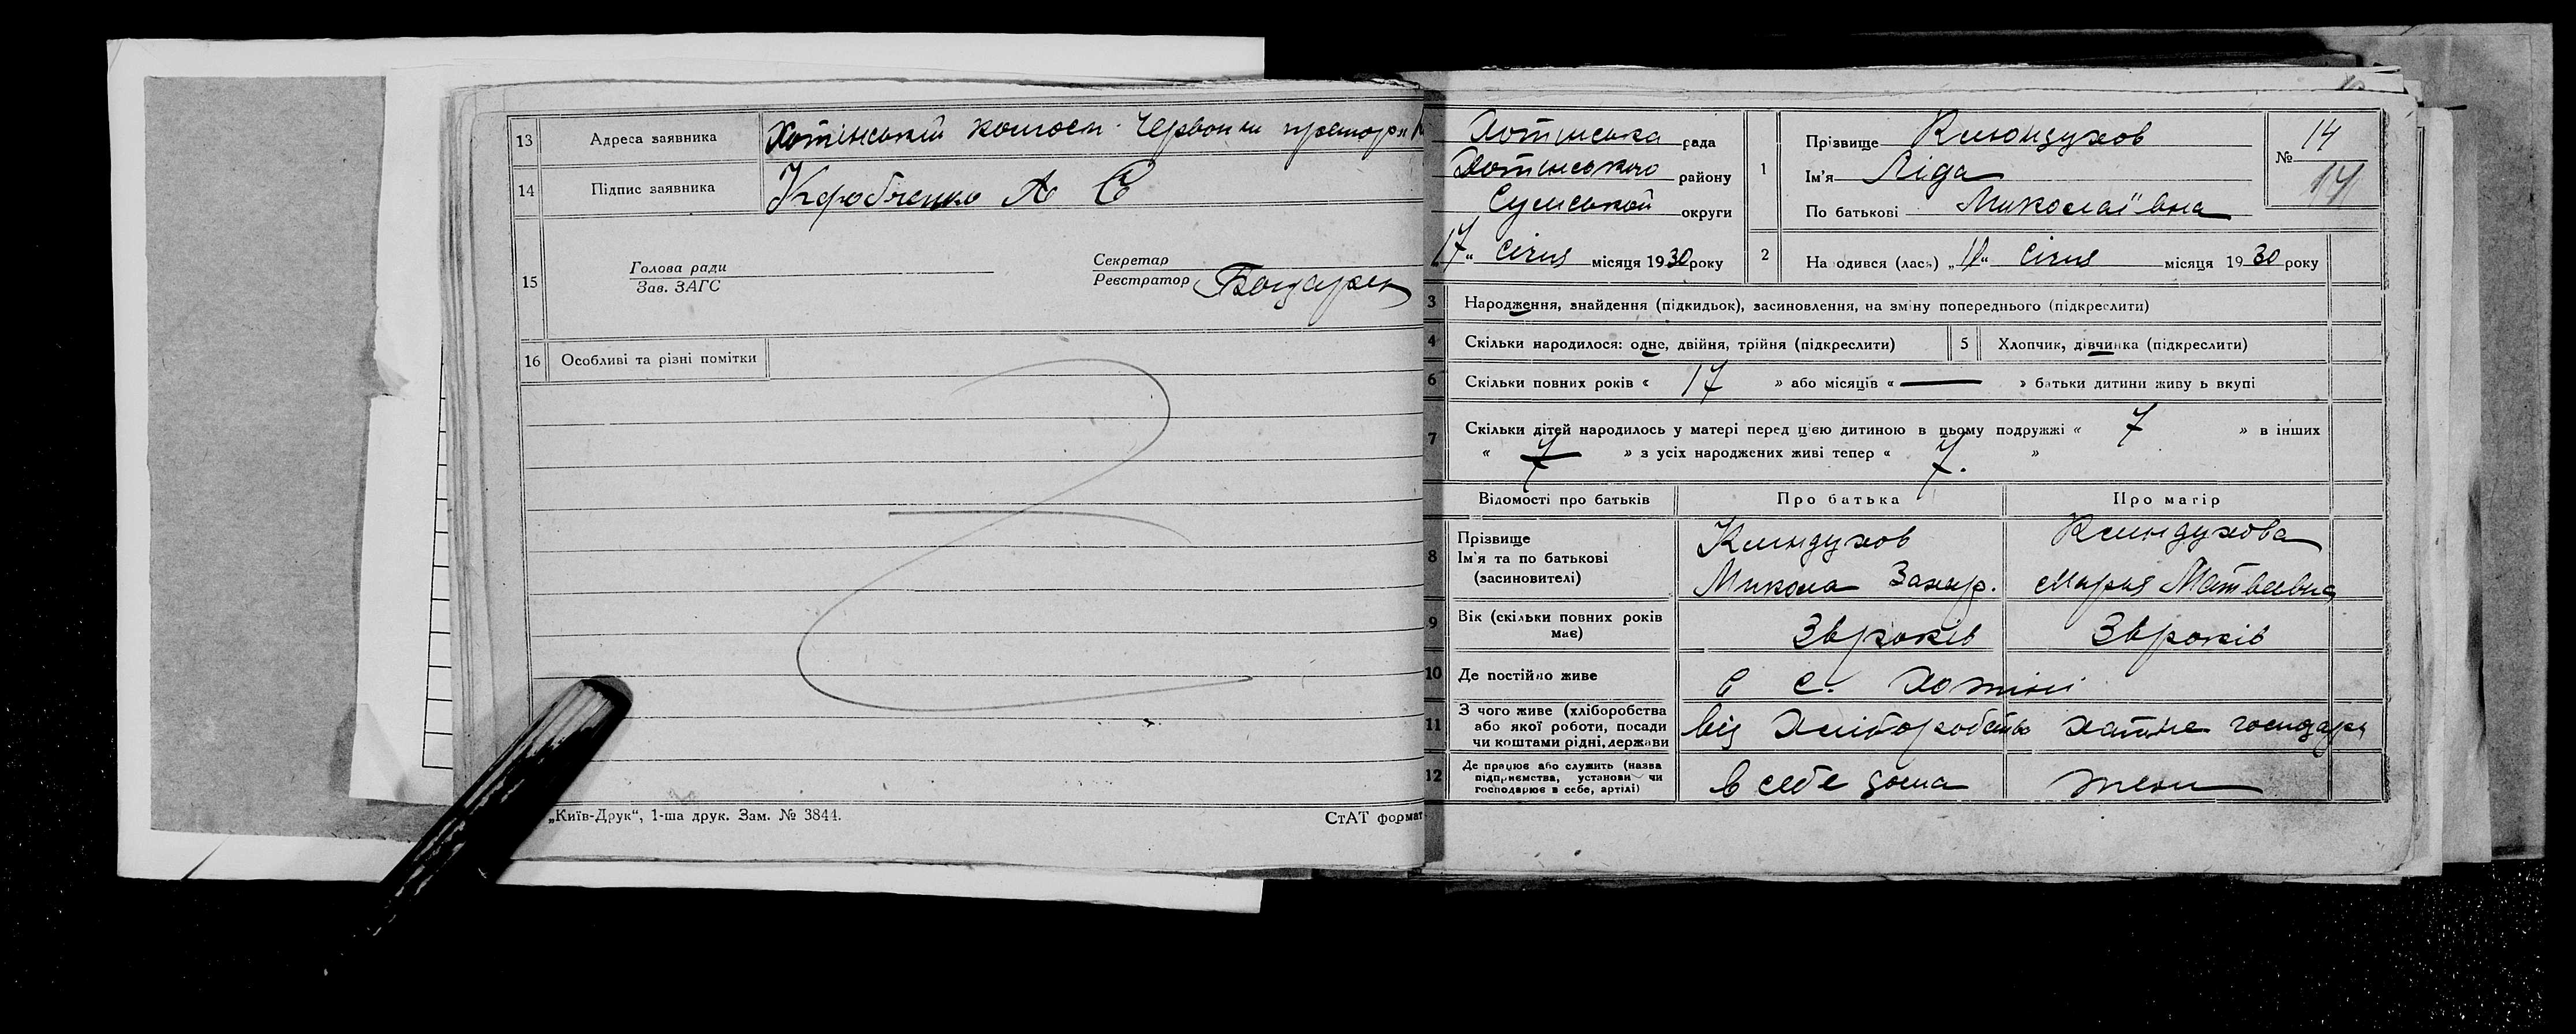 13 Адреса заявника Хотінський колгосп Червоний прапор
14 Підпис заявника А Є
15 Голова ради
Зав. ЗАГС
Секретар
Реєстратор
16 Особливі та різні помітки
„Київ-Друк“, 1-ша друк. Зам. № 3844.
СтАТ формат
Хотінська рада
Хотінського району
Сумської округи
17 січня місяця 1930 року
1 Прізвище
Ім'я Ліда
По батькові Миколаївна
№ 14
14
2 Народився (лась) „ “ січня місяця 1930 року
3 Народження, знайдення (підкидьок), засиновлення, на зміну попереднього (підкреслити)
4 Скільки народилося: одне, двійня, трійня (підкреслити)
5 Хлопчик, дівчинка (підкреслити)
6 Скільки повних років « 17 » або місяців « — » батьки дитини живуть вкупі
7 Скільки дітей народилось у матері перед цією дитиною в цьому подружжі « 7 » в інших
« » з усіх народжених живі тепер « 7. »
Відомості про батьків Про батька Про матір
8 Прізвище
Ім'я та по батькові
(засиновителі)
Клиндухов
Микола Захар.
Клиндухова
Мария Матвеевна
9 Вік (скільки повних років
має)
років років
10 Де постійно живе
в с. Хотіні
11 З чого живе (хліборобства
або якої роботи, посади
чи коштами рідні, держави
від хліборобства хатнє господар
12 Де працює або служить (назва
підприємства, установи чи
господарює в себе, артілі)
в себе дома